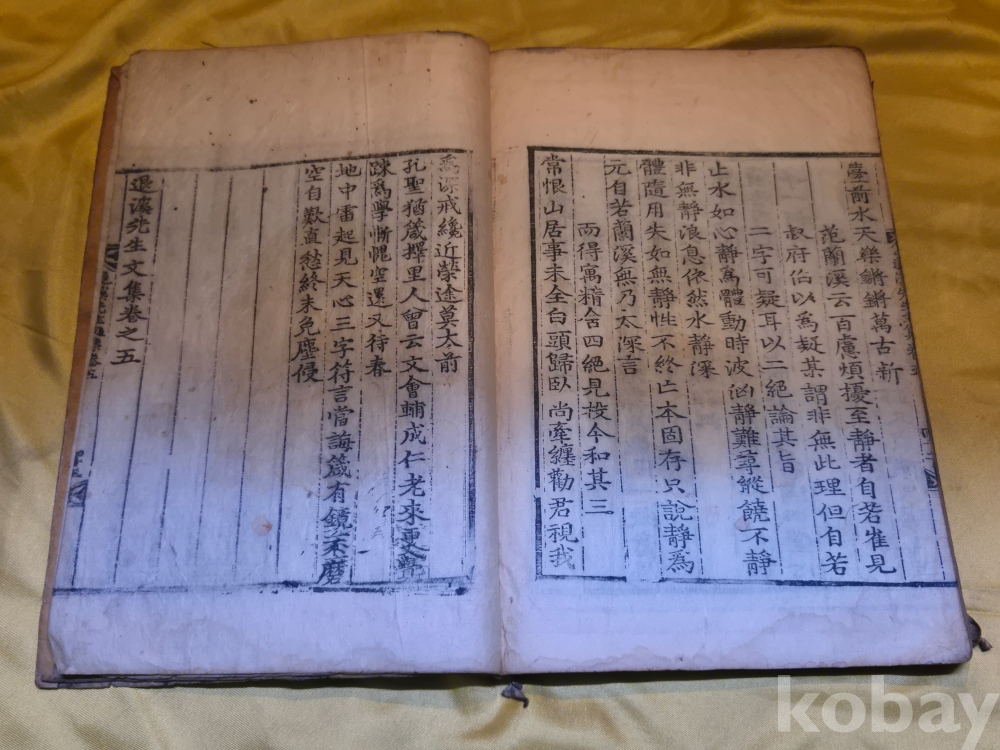 臺前水天樂鏘鏘萬古新
范蘭溪云百慮煩擾至靜者自若崔見
叔府伯以為疑某謂非無此理但自若
二字可疑耳以二絕論其旨
止水如心靜為體動時波洶靜難尋縱饒不靜
非無靜浪息依然水靜深
體隨用失如無靜性不終亡本固存只說靜為
元自若蘭溪無乃太深言
而得寓精舍四絕見投今和其三
常恨山居事未全白頭歸臥尚牽纏勸君視我
為深戒纔近榮途莫太前
孔聖猶箴擇里人曾云文會輔成仁老來更覺
踈為學慚愧空還又待春
地中雷起見天心三字符言當誨箴有鏡不磨
空自歎直愁終未免塵侵
退溪先生文集卷之五
kobay